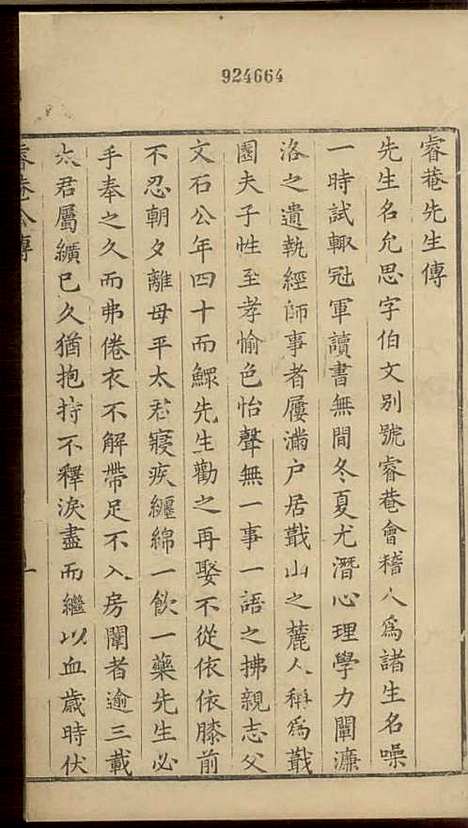 924664
睿菴先生傳
先生名允思字伯文別號睿菴會稽人爲諸生名噪
一時試輒冠軍讀書無間冬夏尤潛心理學力闡濂
洛之遺執經師事者屨滿户居蕺山之麓人稱爲蕺
園夫子性至孝愉色怡聲無一事一語之拂親志父
文石公年四十而鰥先生勸之再娶不從依依膝前
不忍朝夕離母平太君寢疾纏綿一飲一藥先生必
手奉之久而弗倦衣不解帶足不入房闥者逾三載
太君屬纊已久猶抱持不釋淚盡而繼以血歲時伏
睿菴公傳
一